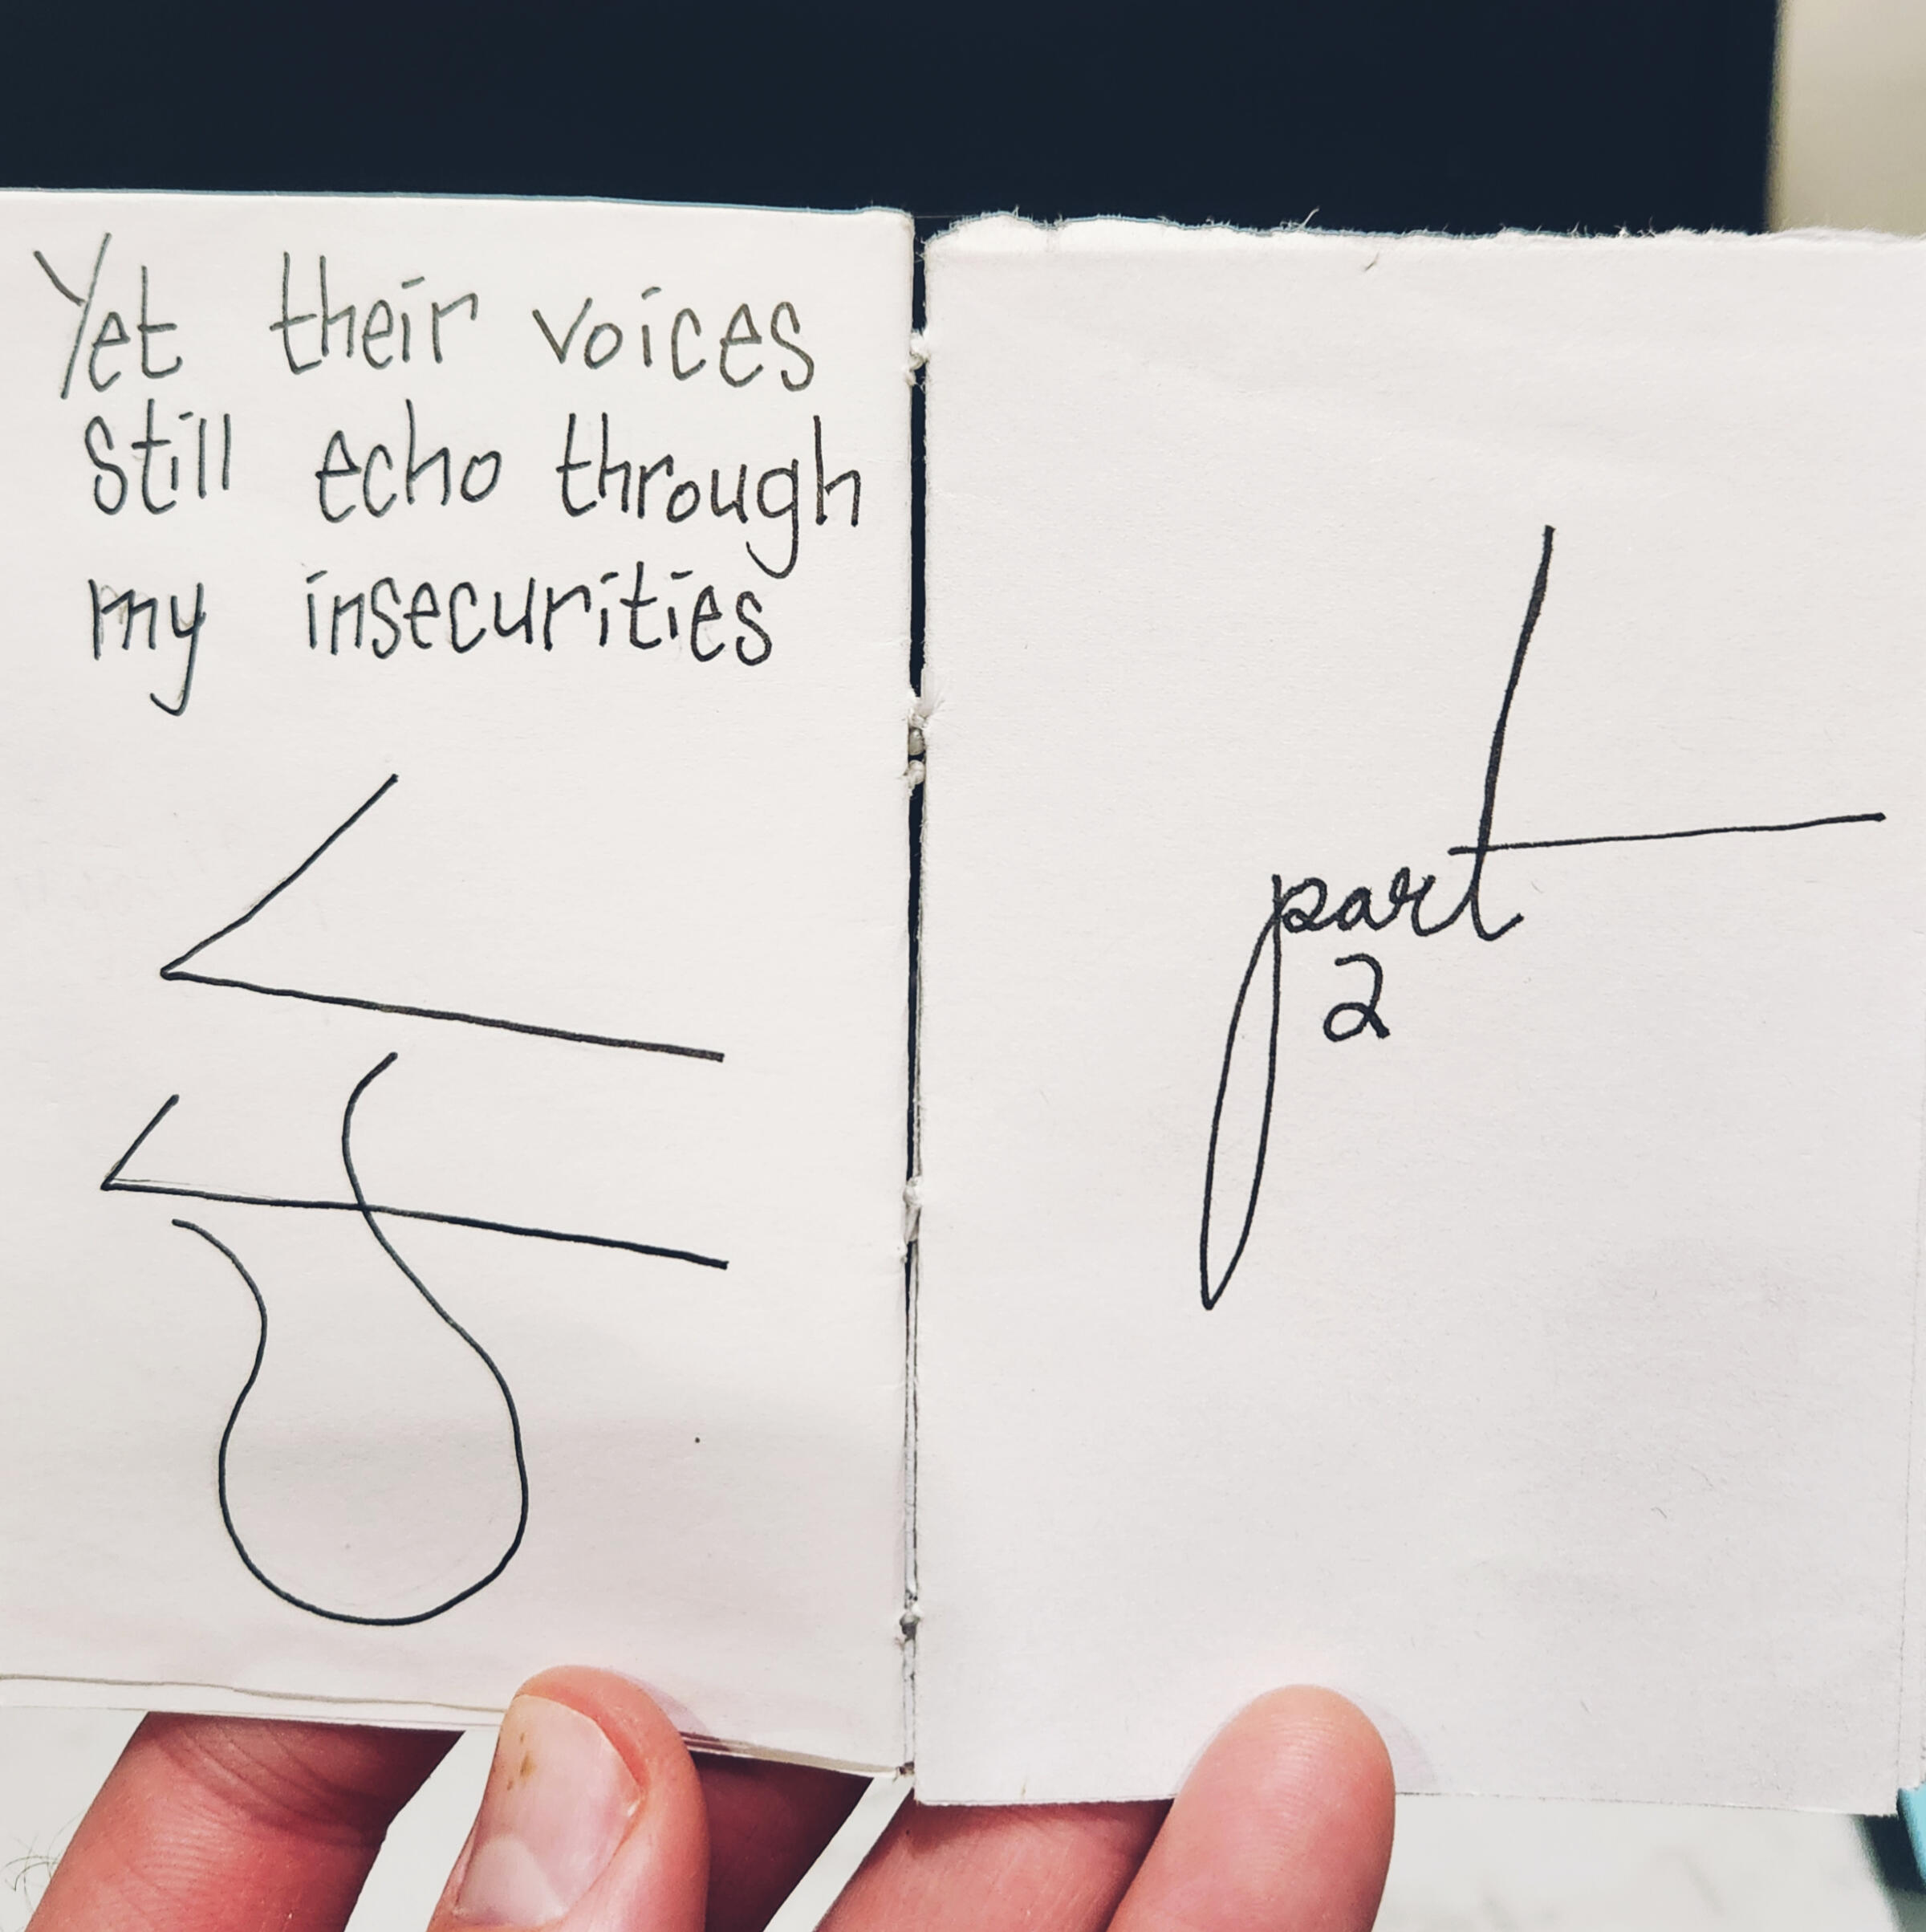 Yet their voices
still echo through
my insecurities
part
2